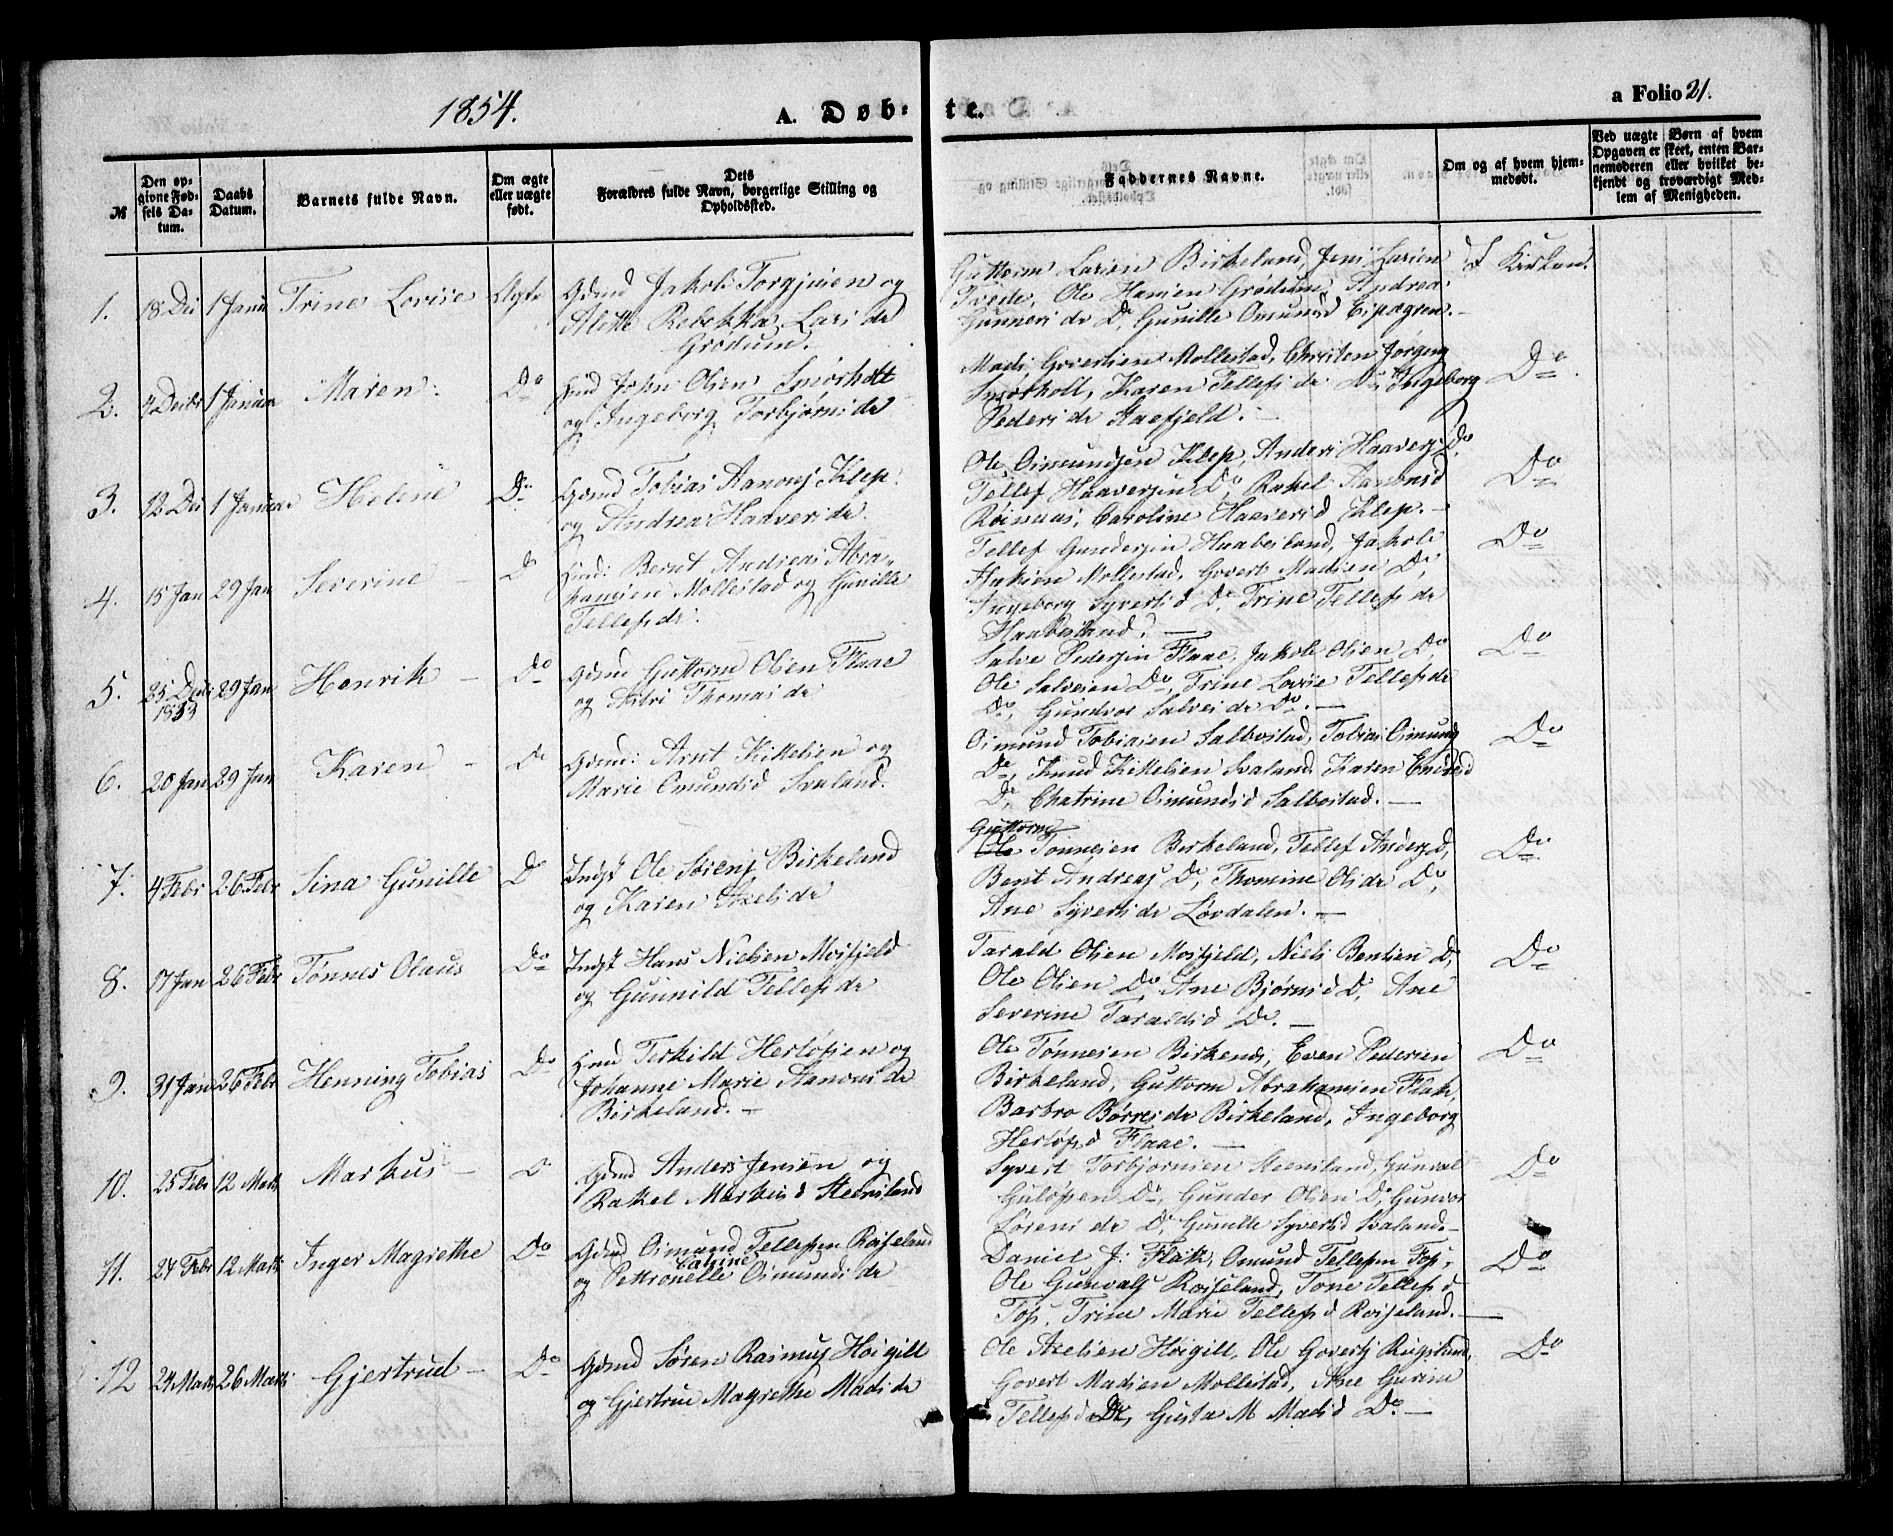 1854.
A. Døb-
te.
a Folio 21.
№
Den op-
givne Fød-
sels Da-
tum.
Daabs
Datum.
Barnets fulde Navn.
Om ægte
eller uægte
født.
Dets
Forældres fulde Navn, borgerlige Stilling og
Opholdssted.
Faddernes Navne.
Om og af hvem hjem-
medøbt.
Ved uægte Børn af hvem
Opgaven er skeet, enten Bar-
nemoderen eller hvilket be-
kjendt og troværdigt Med-
lem af Menigheden.
1. 18 Dec 1 Janu Trine Lovise Ægte
Gdmd Jakob Torgjusen og
Alette Rebekka Lars dr
Grødum.
Guttorm Larsen Birkeland, Jens Larsen
Tvede, Ole Hansen Grødum, Andrea
Gunners dr Do, Gunille Omunds d Espegren.
I Kirken.
2. 4 Decbr 1 Januar Maren. Do
Hmd John Olsen Smørholt
og Ingeborg Torbjørns dr
Mads Govertsen Mollestad, Christen Jørgens
Smørholt, Karen Tellefs dr Do, Ingeborg
Peders dr Kaefjeld.
Do
3. 12 Dec 1 Januar Helene Do
Gdmd Tobias Aanons Klep
og Andrea Haavers dr.
Ole Osmundsen Klep, Anders Haavers Do,
Tellef Haaversen Do, Rakel Aanons d
Røinaas, Caroline Haavers d Klep.
Do
4. 15 Jan 29 Jan Severine D
Hmd: Bernt Andreas Abra-
hamsen Mollestad og Gunille
Tellefs dr.
Tellef Gundersen Haabesland, Jakob
Mollestad, Govert Madsen Do,
Ingeborg Syverts d Do, Trine Tellefs dr
Haabesland.
Do
5. 25 Decbr 1853 29 Jan Henrik Do
Gdmd Guttorm Olsen Flaae
og Thomas dr
Salve Pedersen Flaae, Jakob Olsen Do
Ole Salvesen Do, Trine Lovise Tellefs dr
Do, Gundvor Salves dr Do.
Do
6. 20 Jan 29 Jan Karen Do
Gdmd: Arnt Kittelsen og
Marie Omunds d Svaland.
Osmund Tobiasen Salbostad, Tobias Osmunds
Do, Knud Kittelsen Svaland, Karen
Do, Chatrine Osmunds d Salbostad.
Do
7. 4 Febr 26 Febr Sina Gunille D
Indst Ole Sørens Birkeland
og Karen Axels dr
Guttorm
Ole Tønnesen Birkeland, Tellef Anders D,
Bent Andreas Do, Thomine Ols dr Do,
Ane Syverts dr Løvdalen.
Do
8. 17 Jan 26 Febr Tønnes Olaus Do
Indst Hans Nielsen Mosfjeld
og Gunnild Tellefs dr
Tarald Olsen Mosfjeld, Niels Bentsen D,
Ole Olsen Do, Ane Bjørns d D, Ane
Severine Taralds d Do.
Do
9. 31 Jan 26 Febr Henning Tobias Do
Hmd Terkild Herlofsen og
Johanne Marie Aanons dr
Birkeland.
Ole Tønnesen Birkends, Even Pedersen
Birkeland, Guttorm Abrahamsen Flak,
Barbro Børres dr Birkeland, Ingeborg
Herløfs d Flaae.
Do
10. 25 Febr 12 Mats Markus D
Gdmd Anders Jensen og
Rakel Markus d Steensland
Syvert Torbjørnsen Steensland, Gunval
Guløfsen Do, Gunder Olsen Do, Gunvor
Sørens dr Do, Gunille Syverts d Svaland.
Do
11. 27 Febr 12 Mats Inger Magrethe Do
Gdmd Osmund Tellefsen Røiseland
Cathine
og Pettronelle Osmunds dr
Daniel J: Flak, Omund Tellefsen Tofs,
Ole Gunvalds Røiseland, Tone Tellefs d
Tofs, Trine Marie Tellefs d Røiseland.
Do
12 24 Mats 26 Mats Gjertrud Do
Gdmd Søren Rasmus Høigilt
og Gjertrue Magrethe Mads dr
Ole Axelsen Høigilt, Ole Goverts
Govert Madsen Mollestad, Ane Gurine
Tellefs d Do, Gusta M Mads d Do.
Do